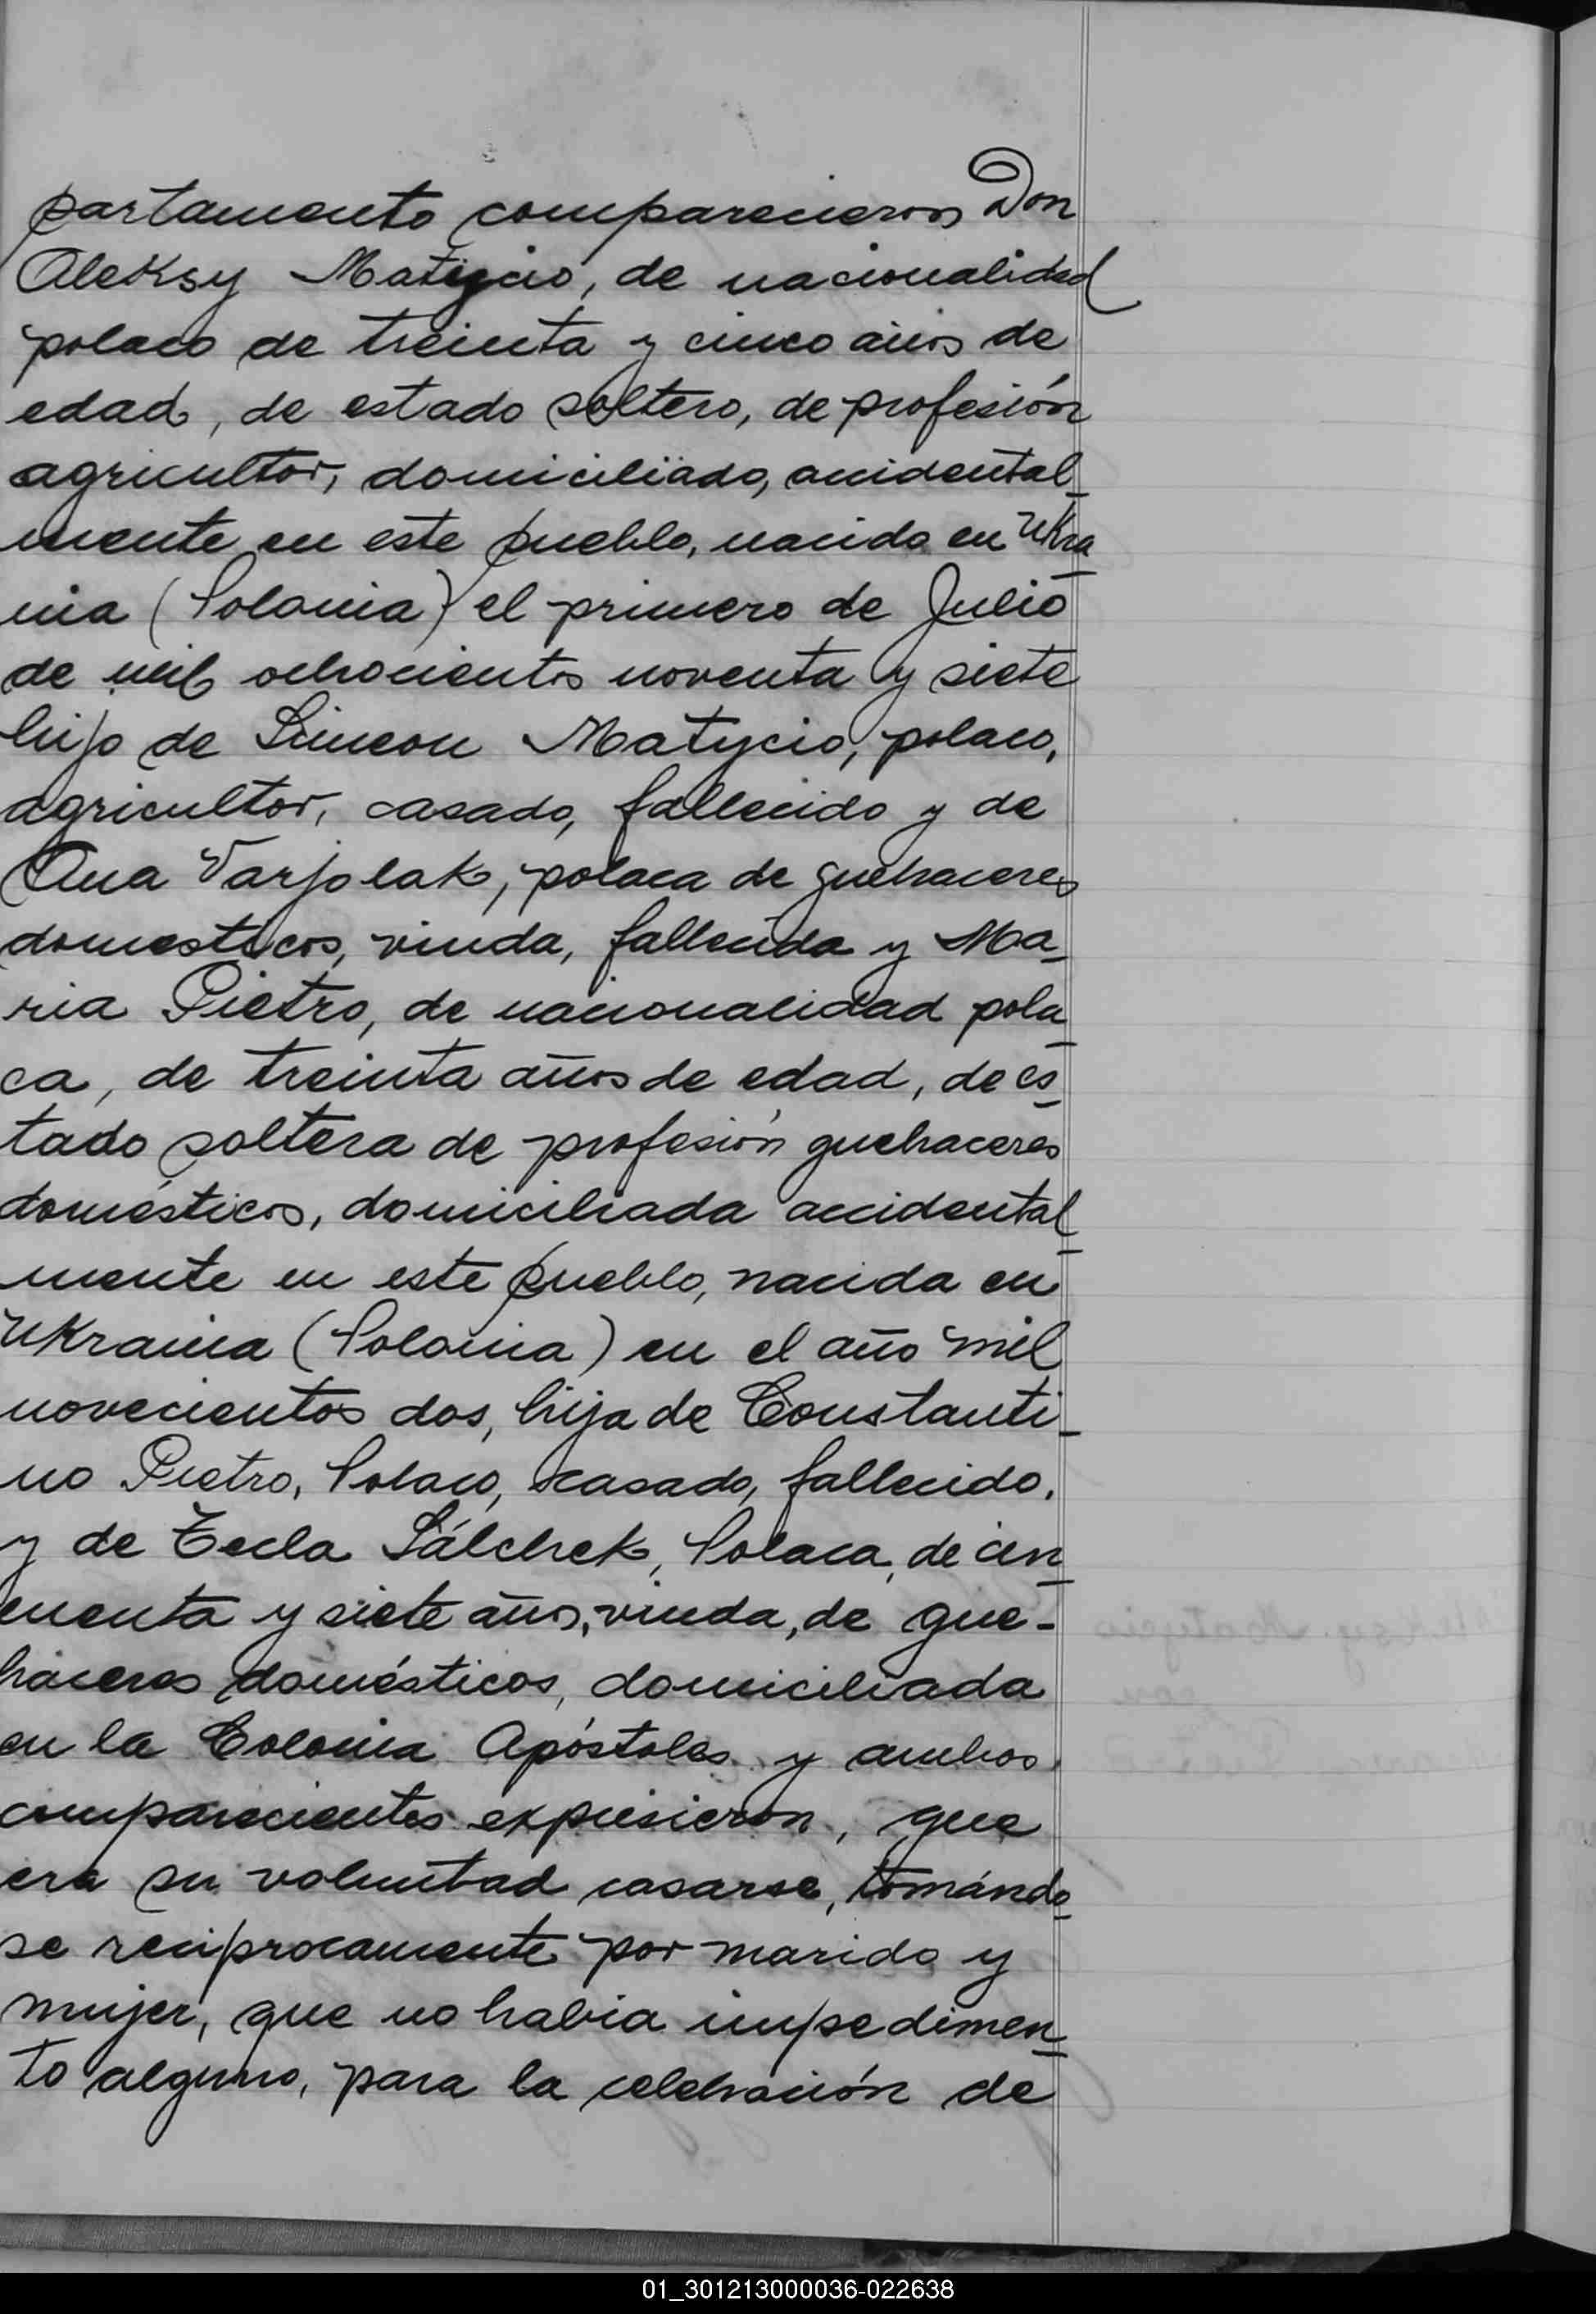 partamento comparecieron Don
Aleksy Matycio, de nacionalidad
polaco de treinta y cinco años de
edad, de estado soltero, de profesión
agricultor, domiciliado, accidental-
mente en este pueblo, nacido en Ukra-
nia (Polonia) el primero de Julio
de mil ochocientos noventa y siete
hijo de Simeon Matycio, polaco,
agricultor, casado, fallecido y de
Ana Varjolak, polaca de quehaceres
domesticos, viuda, fallecida y Ma-
ria Pietro, de nacionalidad pola-
ca, de treinta años de edad, de es-
tado soltera de profesión quehaceres
domésticos, domiciliada accidental-
mente en este pueblo, nacida en
Ukraina (Polonia) en el año mil
novecientos dos, hija de Constanti-
no Pietro, Polaco, casado, fallecido,
y de Tecla Sálchek, Polaca, de cin-
cuenta y siete años, viuda, de que-
haceres domésticos, domiciliada
en la Colonia Apóstoles y ambos
comparecientes expusieron, que
era su voluntad casarse, tomándo-
se reciprocamente por marido y
mujer, que no habia impedimen-
to alguno, para la celebración de
01_301213000036-022638